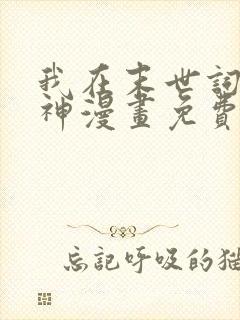 我在末世詞
神漫畫免費
忘記呼吸的猫